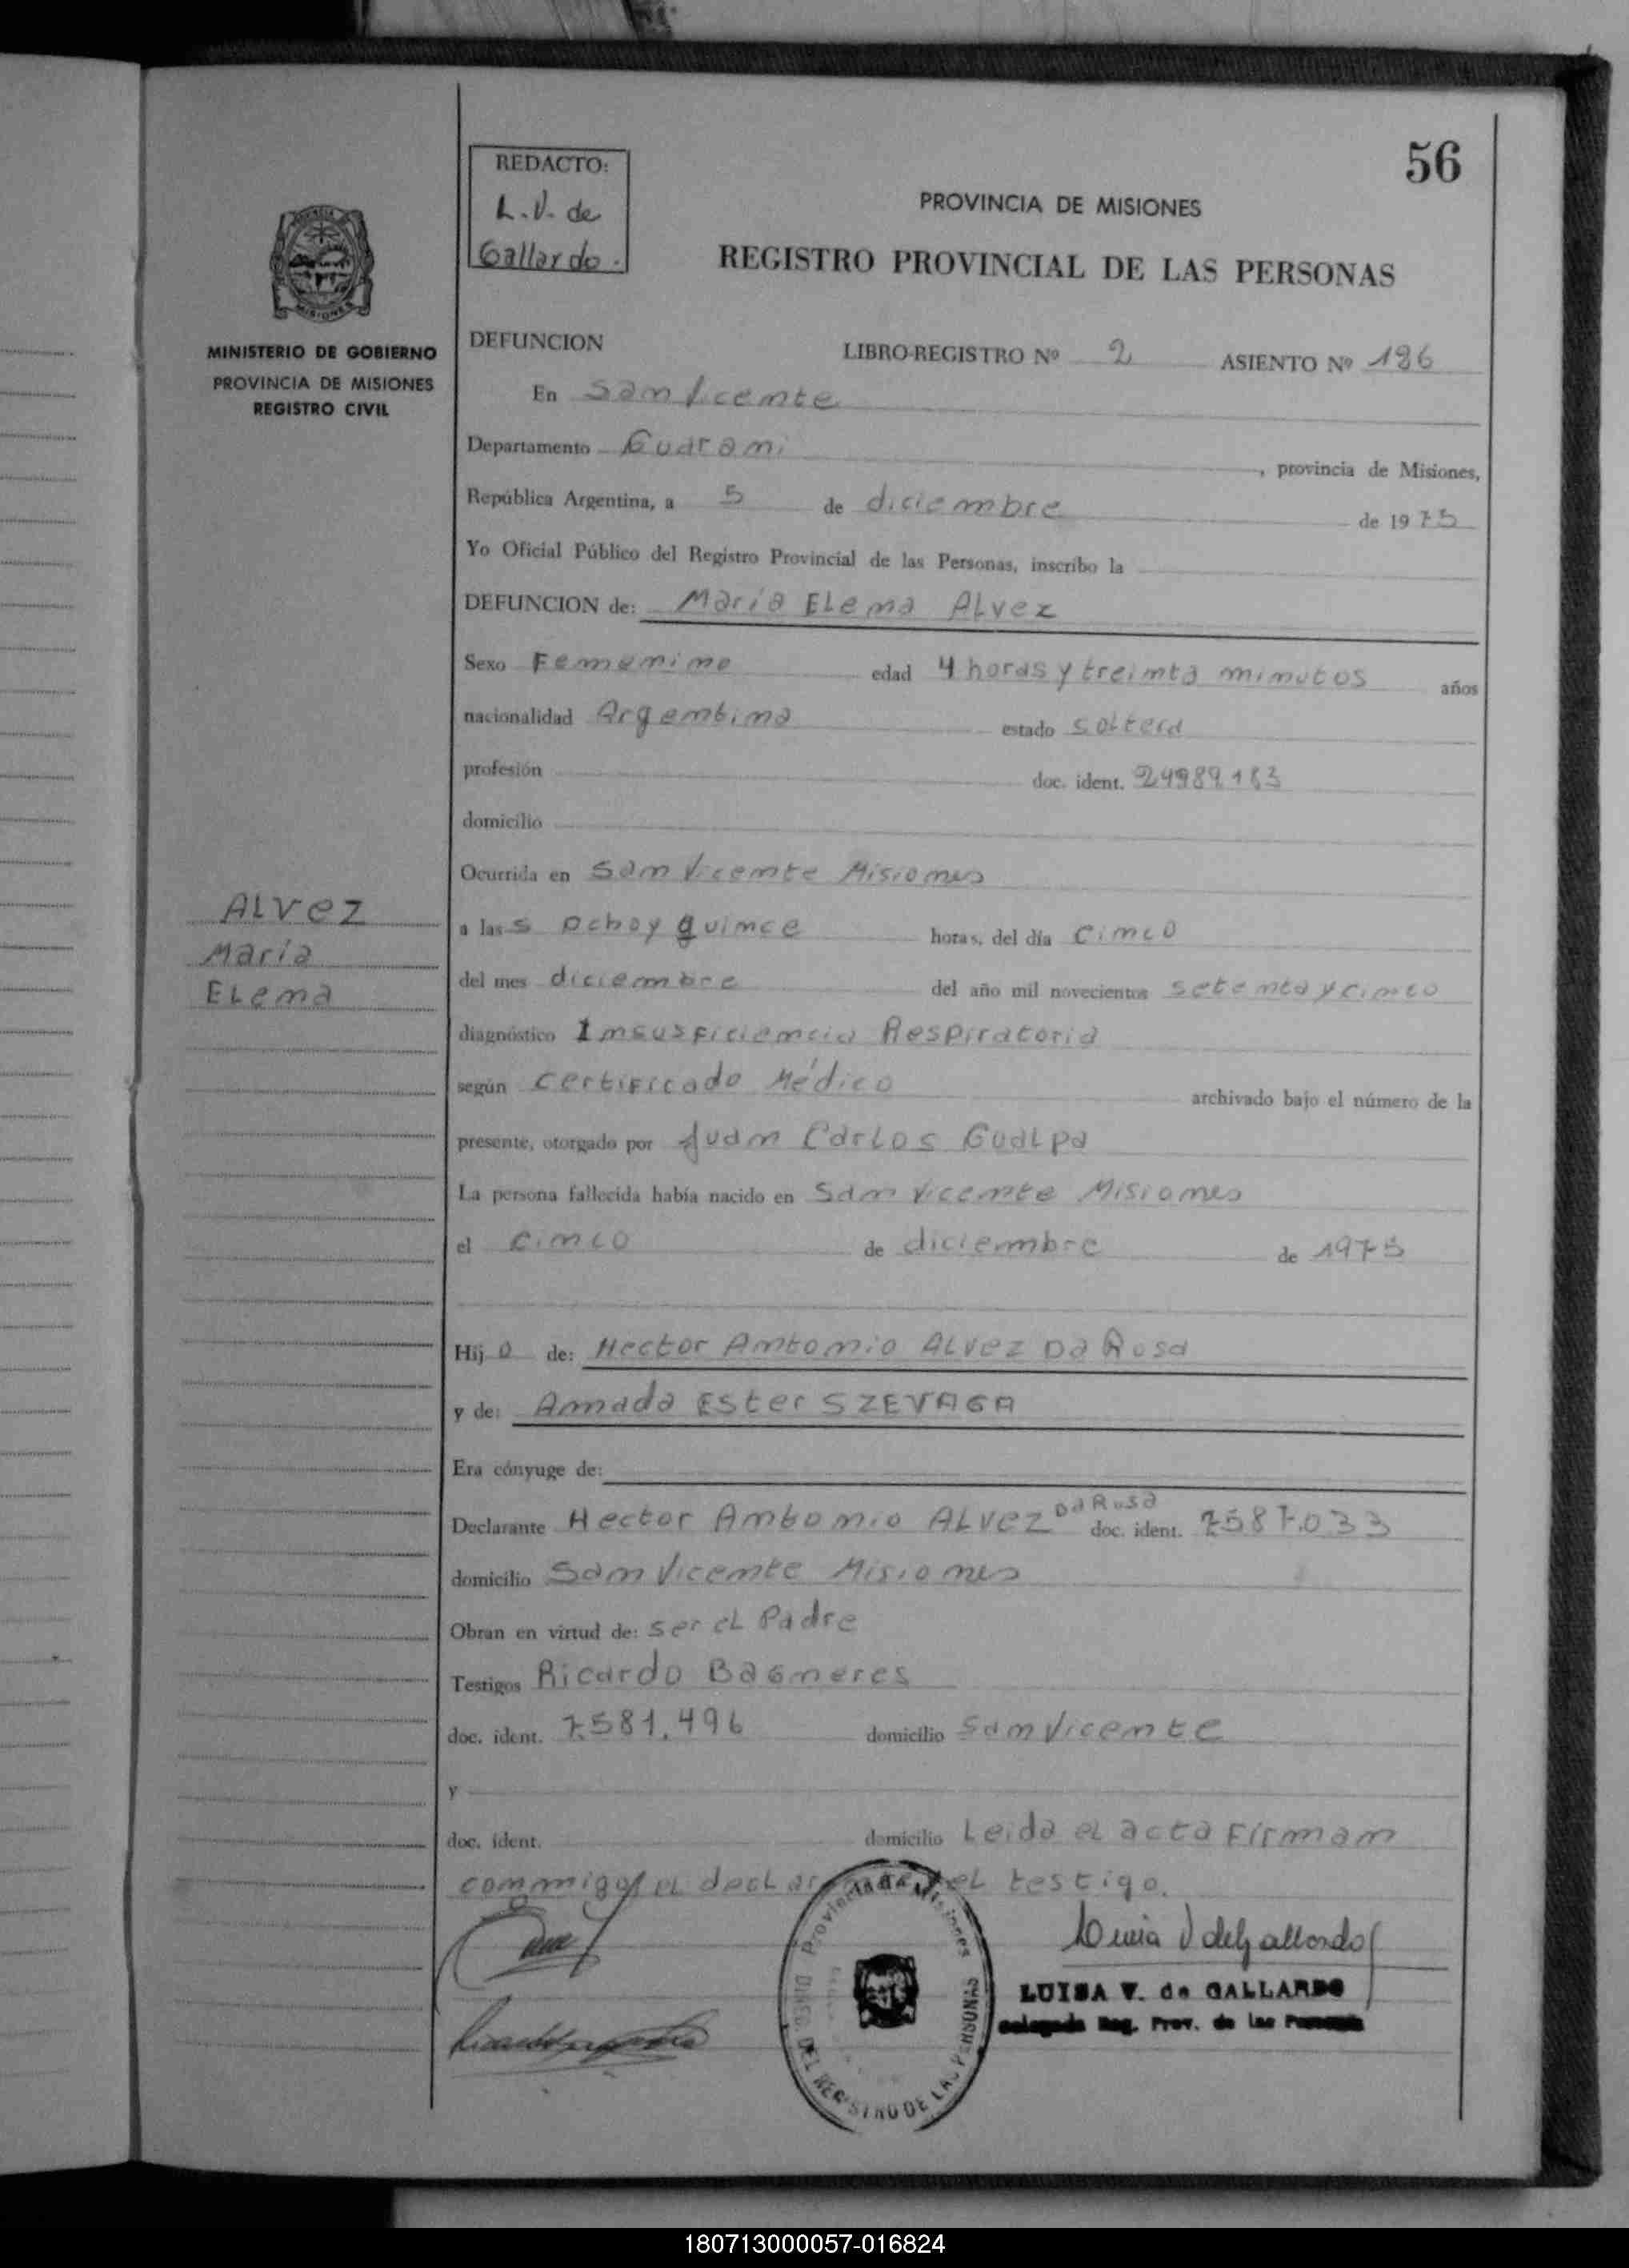 56
REDACTO:
L.V. de
Gallardo.
PROVINCIA DE MISIONES
REGISTRO PROVINCIAL DE LAS PERSONAS
MINISTERIO DE GOBIERNO
PROVINCIA DE MISIONES
REGISTRO CIVIL
DEFUNCION LIBRO-REGISTRO Nº 2 ASIENTO Nº 186
En San Vicente
Departamento Guarani, provincia de Misiones,
República Argentina, a 5 de diciembre de 1975
Yo Oficial Público del Registro Provincial de las Personas, inscribo la
DEFUNCION de: Maria Elena Alvez
Sexo Femenino edad 4 horas y treinta minutos años
nacionalidad Argentina estado soltera
profesión doc. ident. 24989.183
domicilio
Ocurrida en San Vicente Misiones
ALVEZ
Maria
Elena
a las ocho y quince horas, del día cinco
del mes diciembre del año mil novecientos setenta y cinco
diagnóstico Insusficiencia Respiratoria
según certificado Médico archivado bajo el número de la
presente, otorgado por Juan Carlos Gualpa
La persona fallecida había nacido en San Vicente Misiones
el cinco de diciembre de 1975
Hija de: Hector Antonio Alvez Da Rosa
y de: Amada Ester SZEVAGA
Era cónyuge de:
Declarante Hector Antonio Alvez Da Rosa doc. ident. 7587.033
domicilio San Vicente Misiones
Obran en virtud de: ser el Padre
Testigos Ricardo Bagneres
doc. ident. 7.581.496 domicilio San Vicente
y
doc. ident. domicilio Leida el acta Firman
conmigo el declarante y el testigo.
Provincia de Misiones
DIREC. DEL REGISTRO DE LAS PERSONAS
Luisa V de Gallardo
LUISA V. de GALLARDO
Delegada Reg. Prov. de las Personas
180713000057-016824